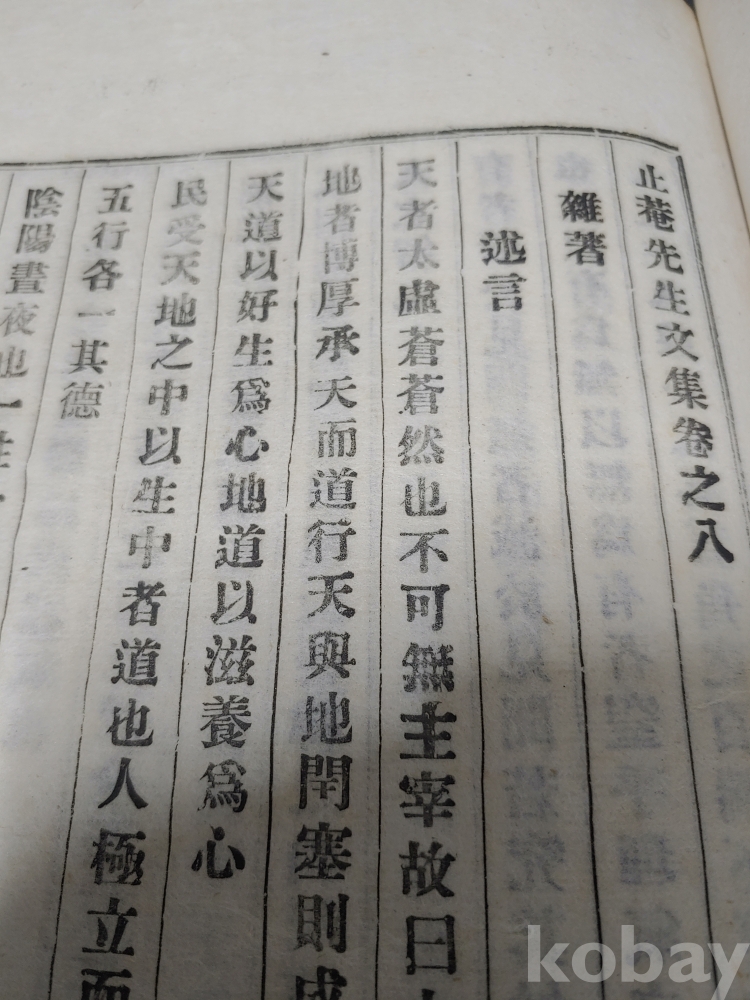 止菴先生文集卷之八
雜著
述言
天者太虛蒼蒼然也不可無主宰故曰
地者博厚承天而道行天與地閇塞則成
天道以好生爲心地道以滋養爲心
民受天地之中以生中者道也人極立而
五行各一其德
陰陽晝夜也一
kobay